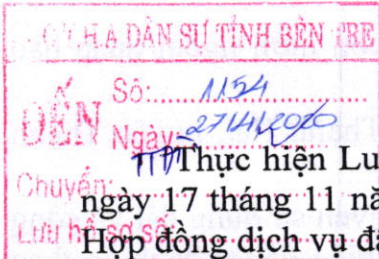 C.T.H.A DÂN SỰ TỈNH BẾN TRE
ĐẾN
Số:.......1154
Ngày: 27/4/2020
Chuyển:
Lưu hồ sơ số
Thực hiện Lu
ngày 17 tháng 11 nă
Hợp đồng dịch vụ đấ